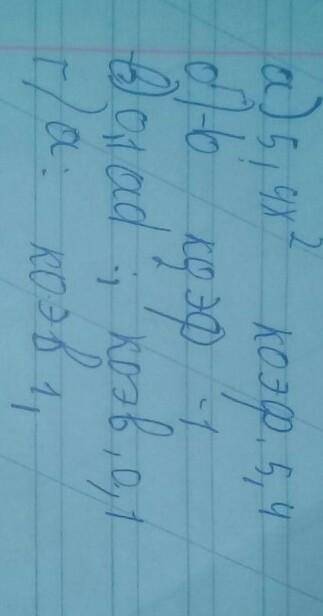 а) 5,4x² коэф. 5,4
б) -b коэф -1
в) 0,1ad ; коэв. 0,1
г) a: коэв 1,